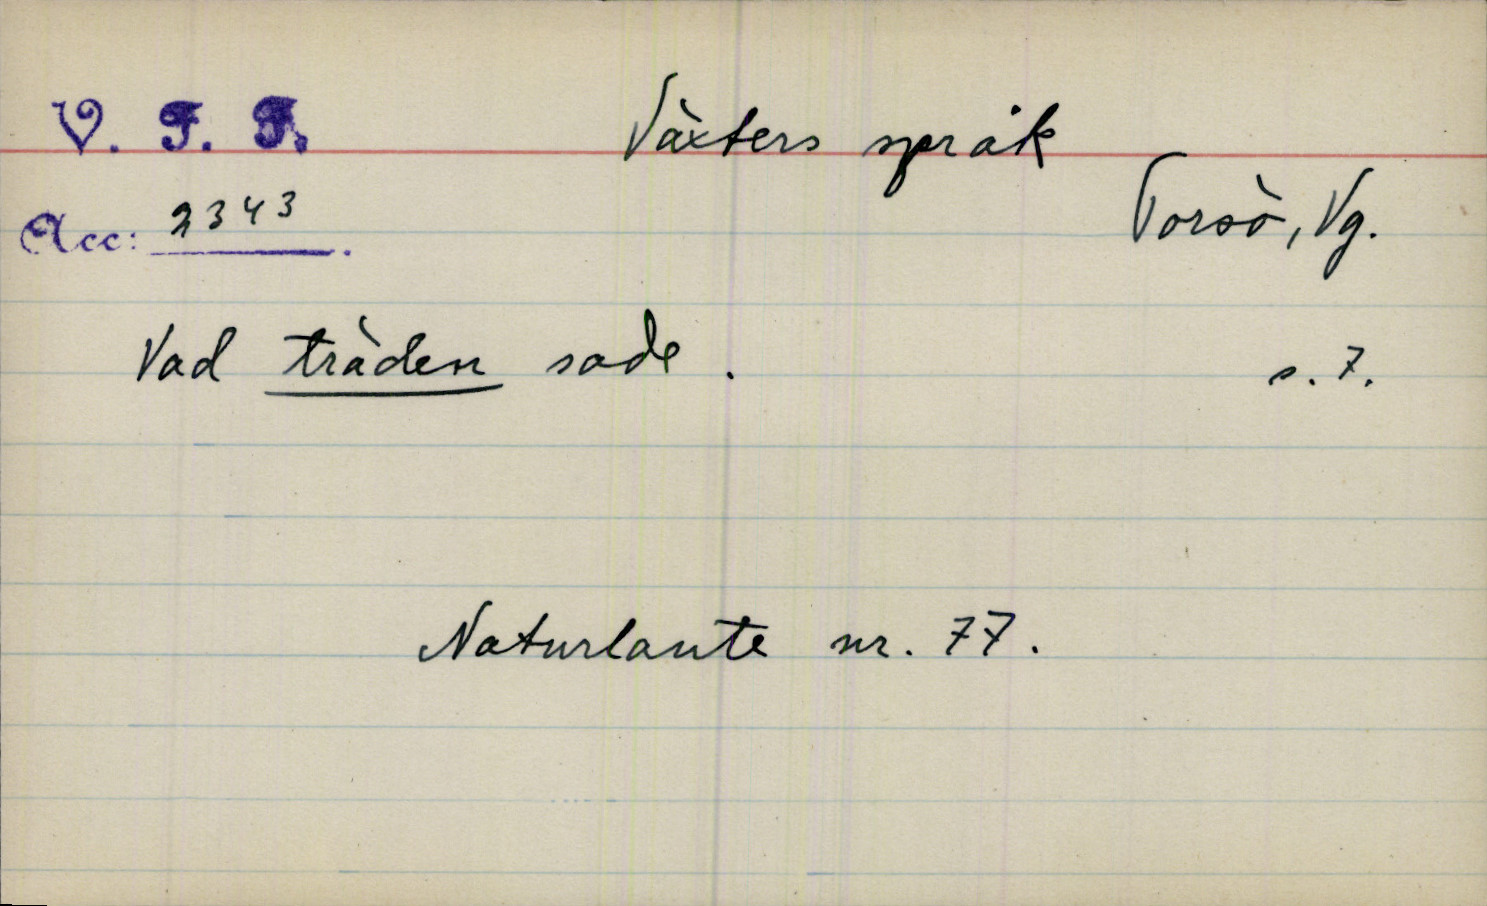 V. F. F. Växters språk
Torsö, Vg.
Acc: 2343.
Vad träden sade. s. 7.
Naturlaute nr. 77.